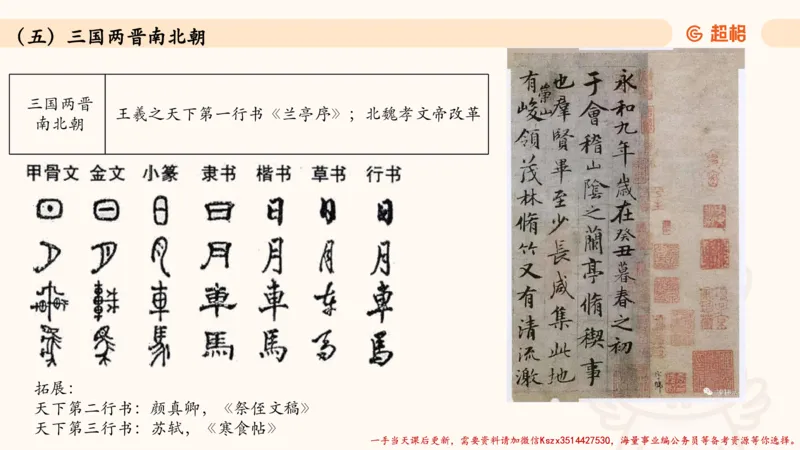 （五）三国两晋南北朝
超格
三国两晋
南北朝
王羲之天下第一行书《兰亭序》；北魏孝文帝改革
甲骨文 金文 小篆 隶书 楷书 草书 行书
日 日 日 日 日 日 日
月 月 月 月 月 月 月
車 車 車 車 車 车 車
馬 馬 馬 馬 馬 马 馬
拓展：
天下第二行书：颜真卿，《祭侄文稿》
天下第三行书：苏轼，《寒食帖》
永和九年歲在癸丑暮春之初
于會稽山陰之蘭亭脩稧事
也羣賢畢至少長咸集此地
有崇山峻領茂林脩竹又有清流激
一手当天课后更新，需要资料请加微信Kszx3514427530，海量事业编公务员等备考资源等你选择。